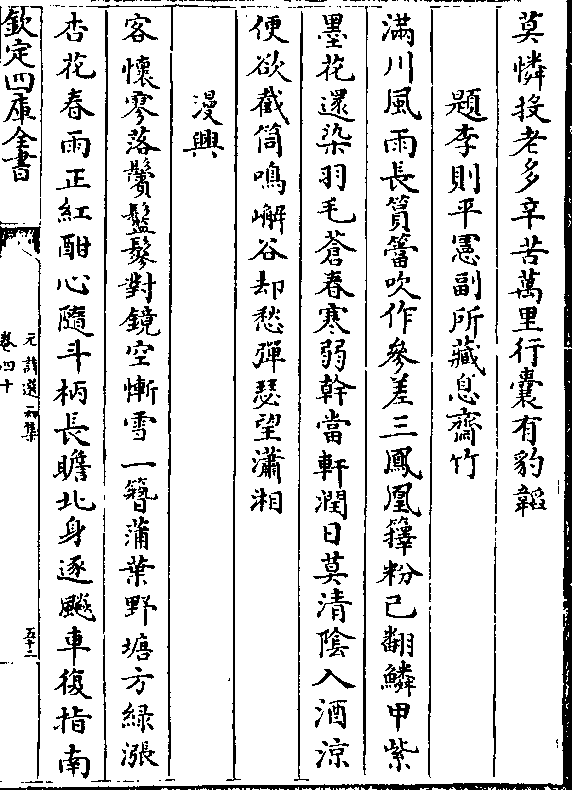 莫憐投老多辛苦萬里行囊有豹韜
題李則平憲副所藏息齋竹
滿川風雨長篔簹吹作參差三鳳凰籜粉已翻鱗甲紫
墨花還染羽毛蒼春寒弱幹當軒潤日莫清陰入酒涼
便欲截筒鳴嶰谷却愁彈瑟望瀟湘
漫興
客懷寥落鬢鬖鬖對鏡空慚雪一簪蒲葉野塘方綠漲
杏花春雨正紅酣心隨斗柄長瞻北身逐飈車復指南
欽定四庫全書
元詩選初集
卷四十
五十三